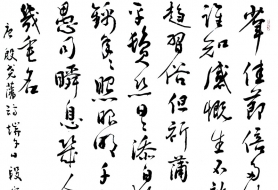 少年佳節倍多
誰知感慨生不
趨習俗但祈蒲
平鬢絲日々添白
錦年々照眼明千
愚同瞬息幾人
幾垂名
唐殷堯藩詩端午日 段